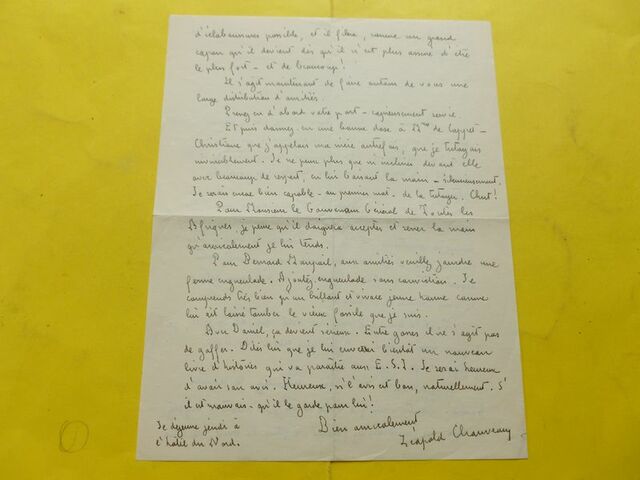 d'éclaboussures possible, et il filera, comme un grand
capon qu'il devient dès qu'il n'est plus assuré d'être
le plus fort – et de beaucoup!
Il s'agit maintenant de faire autour de vous une
large distribution d'amitiés.
Prenez en d'abord votre part – copieusement servie.
Et puis donnez en une bonne dose à Mme de Coppet –
Christiane que j'appelais ma nièce autrefois, que je tutoyais
invinciblement. Je ne peux plus que m'incliner devant elle
avec beaucoup de respect, en lui baisant la main – silencieusement.
Je serais encore bien capable – au premier mot – de la tutoyer. Chut!
Pour Monsieur le Gouverneur Général de Toutes les
Afriques, je pense qu'il daignera accepter et serrer la main
qu'amicalement je lui tends.
Pour Bernard, aux amitiés veuillez joindre une
ferme engueulade. Ajoutez, engueulade sans conviction. Je
comprends très bien qu'un brillant et vivace jeune homme comme
lui ait laissé tomber le vieux fossile que je suis.
Pour Daniel, ça devient sérieux. Entre gosses il ne s'agit pas
de gaffer. Dites lui que je lui enverrai bientôt un nouveau
livre d'histoires qui va paraître aux E.S.I. Je serai heureux
d'avoir son avis. Heureux, si l'avis est bon, naturellement. S'
il est mauvais – qu'il le garde pour lui!
Bien amicalement
Léopold Chauveau
Je déjeune jeudi à
l'hôtel du Nord.
1